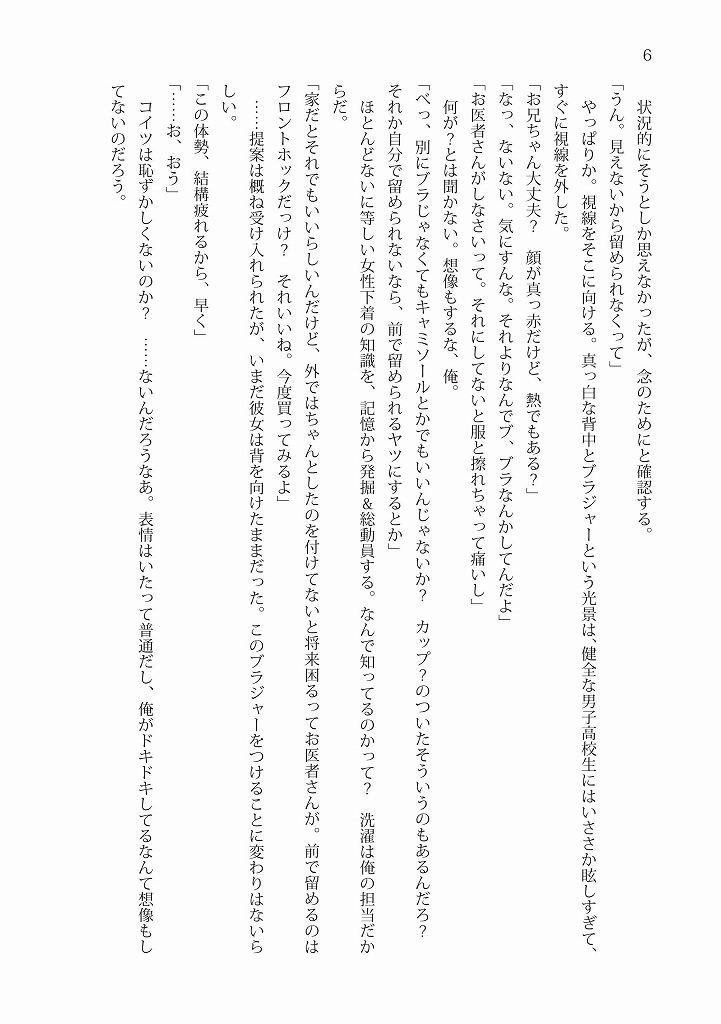 6
　状況的にそうとしか思えなかったが、念のためにと確認する。
「うん。見えないから留められなくって」
　やっぱりか。視線をそこに向ける。真っ白な背中とブラジャーという光景は、健全な男子高校生にはいささか眩しすぎて、
すぐに視線を外した。
「お兄ちゃん大丈夫？　顔が真っ赤だけど、熱でもある？」
「なっ、ないない。気にすんな。それよりなんでブ、ブラなんかしてんだよ」
「お医者さんがしなさいって。それにしてないと服と擦れちゃって痛いし」
　何が？とは聞かない。想像もするな、俺。
「べっ、別にブラじゃなくてもキャミソールとかでもいいんじゃないか？　カップ？のついたそういうのもあるんだろ？
それか自分で留められないなら、前で留められるヤツにするとか」
　ほとんどないに等しい女性下着の知識を、記憶から発掘＆総動員する。なんで知ってるのかって？　洗濯は俺の担当だか
らだ。
「家だとそれでもいいらしいんだけど、外ではちゃんとしたのを付けてないと将来困るってお医者さんが。前で留めるのは
フロントホックだっけ？　それいいね。今度買ってみるよ」
　……提案は概ね受け入れられたが、いまだ彼女は背を向けたままだった。このブラジャーをつけることに変わりはないら
しい。
「この体勢、結構疲れるから、早く」
「……お、おう」
　コイツは恥ずかしくないのか？　……ないんだろうなあ。表情はいたって普通だし、俺がドキドキしてるなんて想像もし
てないのだろう。